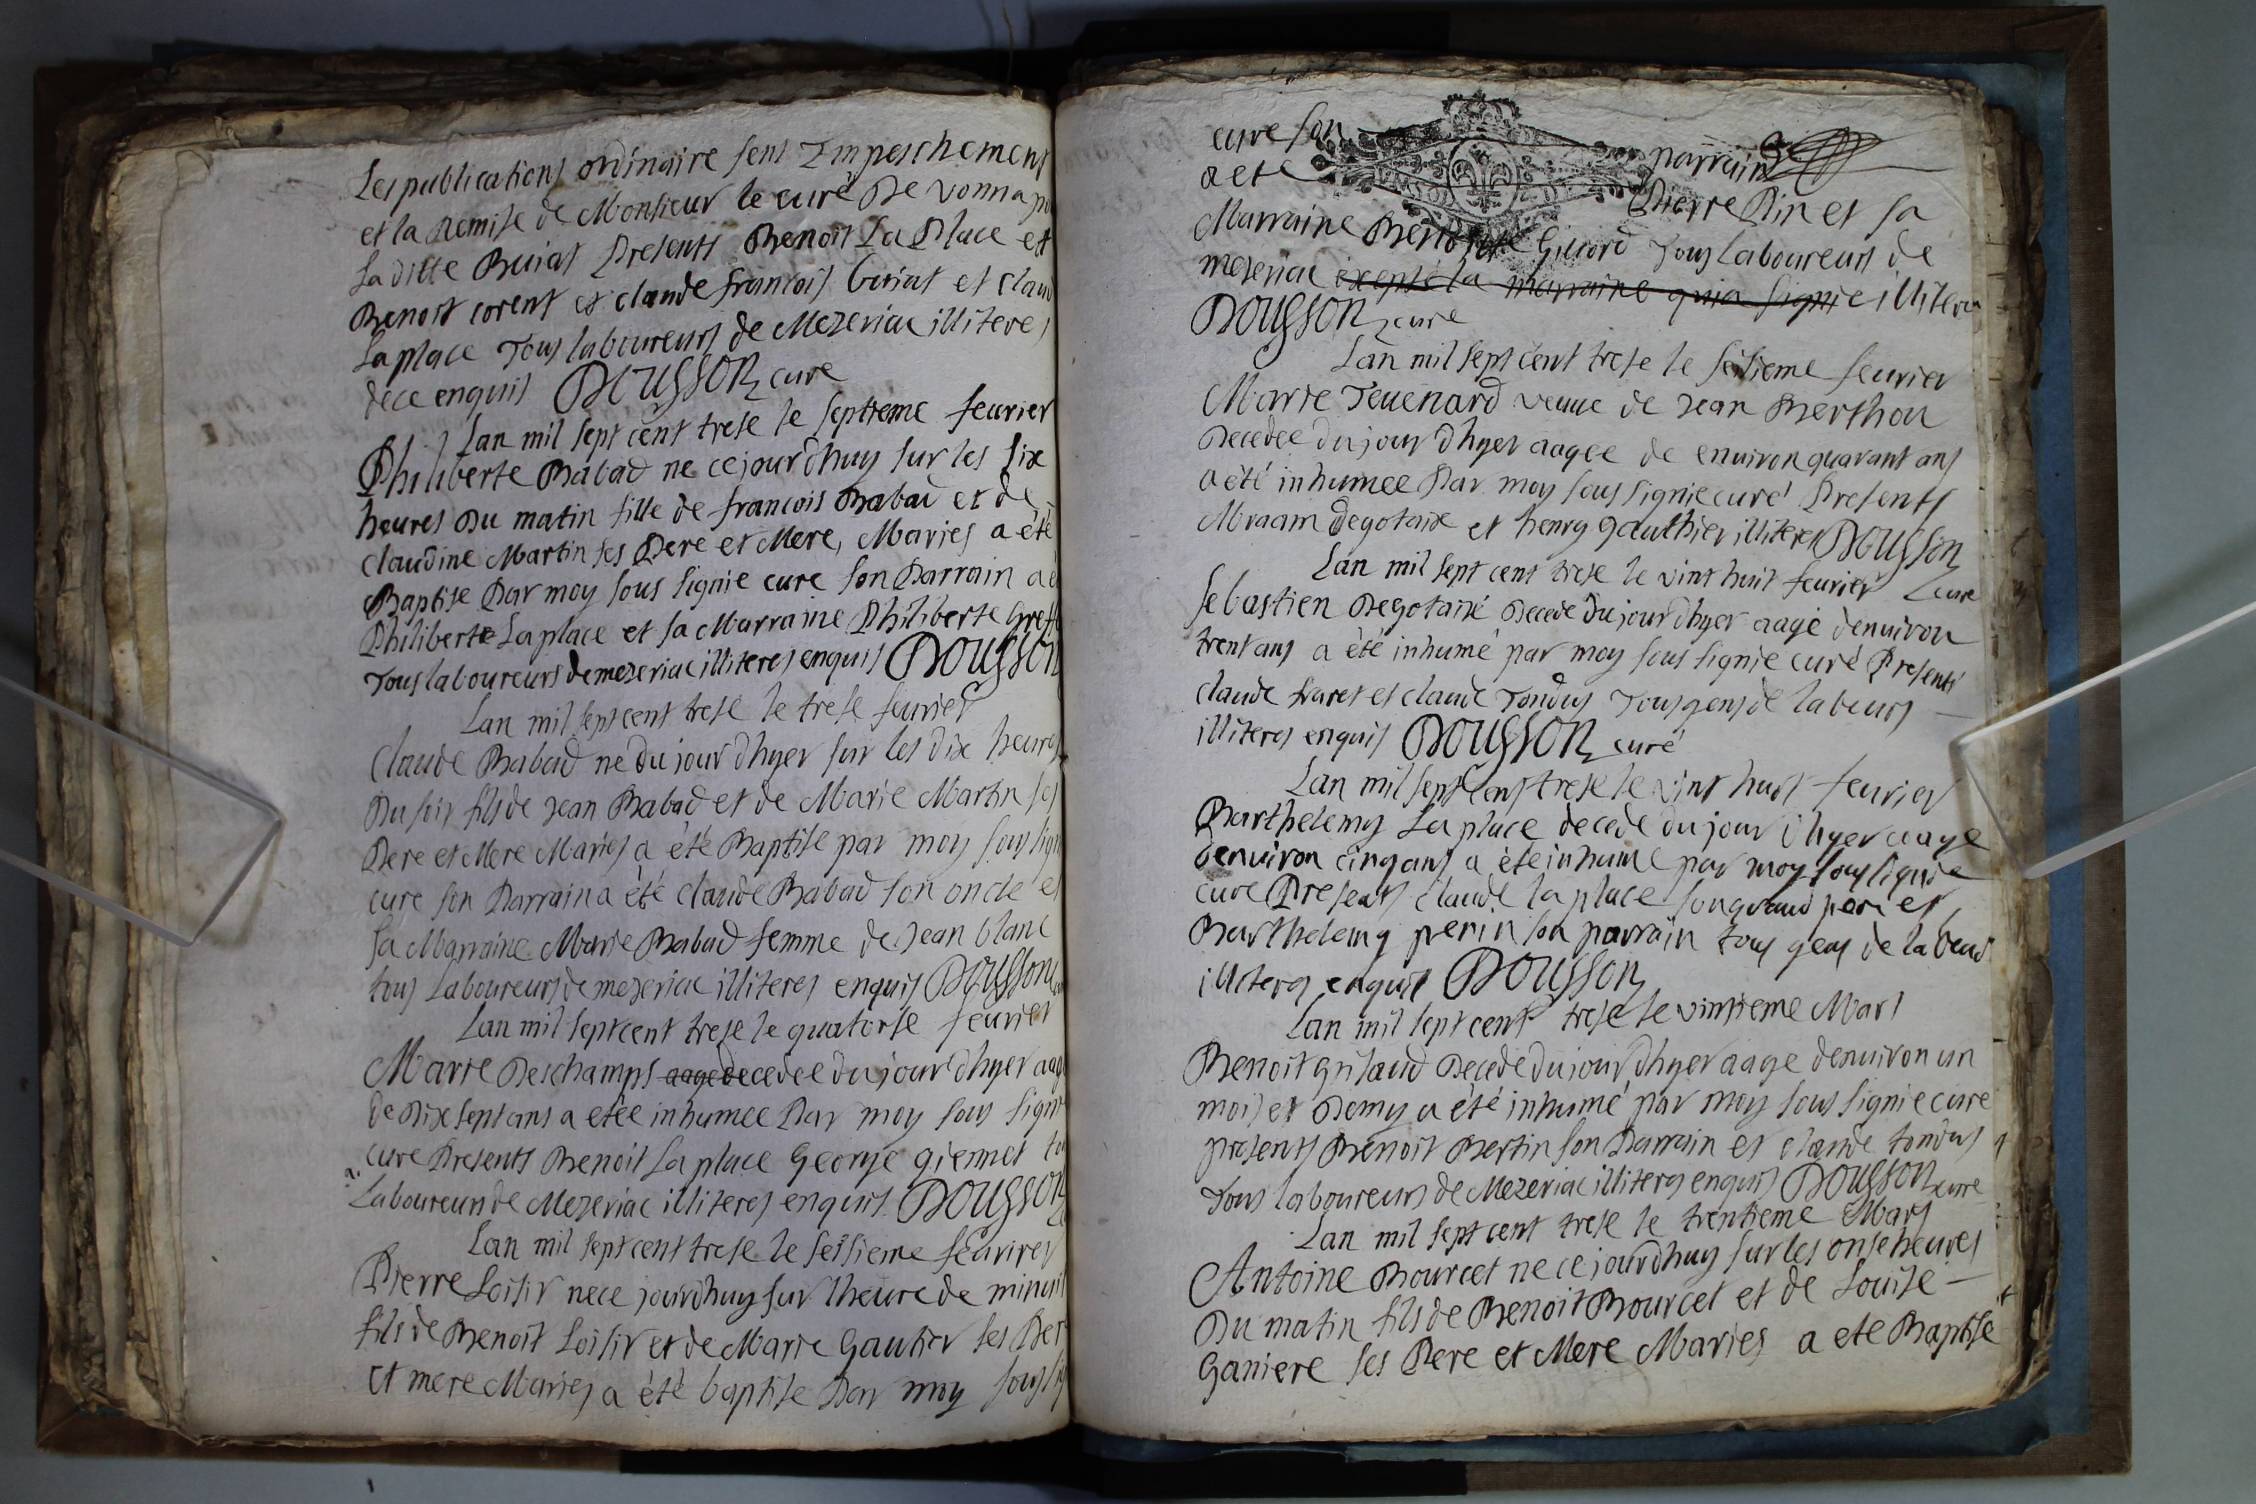 Les publications ordinaire sens Impeschement
et la Remise de Monsieur le curé De vonna
La ditte Buiat Presents Benoit La Place et
Benoit corent et claude francois buiat et claud
La place Tous laboureurs de Mezeriac illiteres
dece enquis DOUSSON cure
Lan mil sept cent trese le septieme feurier
Philiberte Babad ne cejourdhuy sur les six
heures Du matin fille de francois Babad et de
claudine Martin ses Pere et Mere, Maries a été
Baptise Par moy sous signie cure son Parrain a
Philiberte Laplace et sa Marraine Philiberte
Tous laboureurs de mezeriac illiteres enquis DOUSSON
Lan mil sept cent trese le trese feurier
Claude Babad ne du jour dhyer sur les dix heures
Du soir fils de Jean Babad et de Marie Martin ses
Pere et Mere Maries a été Baptise par moy sous sign
cure son Parrain a été claude Babad son oncle et
sa Marraine Marie Babad femme de Jean blanc
tous Laboureurs de mezeriac illiteres enquis DOUSSON
Lan mil sept cent trese le quatorse feurier
Marie Deschamps aage decedee du jour dhyer aag
de Dix sept ans a etée inhumee Par moy sous sign
cure Presents Benoit La place George giennet
Laboureurs de Mezeriac illiteres enquis DOUSSON
Lan mil sept cent trese le seisieme feurier
Pierre Loisir ne ce jourdhuy sur lheure de minuit
fils de Benoit Loisir et de Marie Gautier ses Per
et mere Maries a été baptise Par moy sous sig
cure son parrain
a eté Pierre Pin et sa
Marraine Benoiste Tous Laboureurs de
mezeriac excepté la marraine qui a signie
DOUSSON cure
Lan mil sept cent trese le seisieme feurier
Marie Teuenard veuue de Jean Berthou
Decedee du jour dhyer aagee de enuiron quarant ans
a été inhumee Par moy sous signie curé Presents
Abraam degotaix et henry gauthier illiteres DOUSSON
cure
Lan mil sept cent trese le vint huit feurier
Sebastien Degotaix Decede du jour dhyer aagé denuiron
trent ans a été inhumé par moy sous signie curé Presents
claude et claude Tondus Tous gens de labeurs
illiteres enquis DOUSSON curé
Lan mil sept cens trese le vint huit feurier
Barthelemy La place decede du jour dhyer aage
denuiron cinq ans a été inhume par moy sous signie
cure Presents claude la place son grand pere et
Barthelemy perin son parrain tous gens de labeur
illiteres enquis DOUSSON
Lan mil sept cent trese le vintieme Mars
Benoit Decede du jour dhyer aage denuiron un
mois et Demy a été inhumé par moy sous signie cure
presents Benoit Bertin son Parrain et claude tondus
Tous laboureurs de Mezeriac illiteres enquis DOUSSON cure
Lan mil sept cent trese le trentieme Mars
Antoine Bourcet ne ce jourdhuy sur les onse heures
Du matin fils de Benoit Bourcet et de Louise
Ganiere ses Pere et Mere Maries a eté Baptise